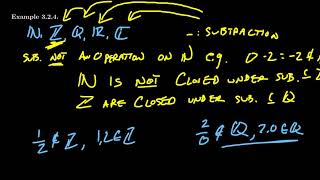 Example 3.2.4.
ℕ, ℤ, ℚ, ℝ, ℂ -: SUBTRACTION
SUB. NOT AN OPERATION ON ℕ e.g. 0-2=-2∉ℕ
ℕ IS NOT CLOSED UNDER SUB.
ℤ ARE CLOSED UNDER SUB. ⊆ ℚ
1/2 ∉ ℤ, 1,2∈ℤ 2/0 ∉ ℚ, 2,0∈ℚ